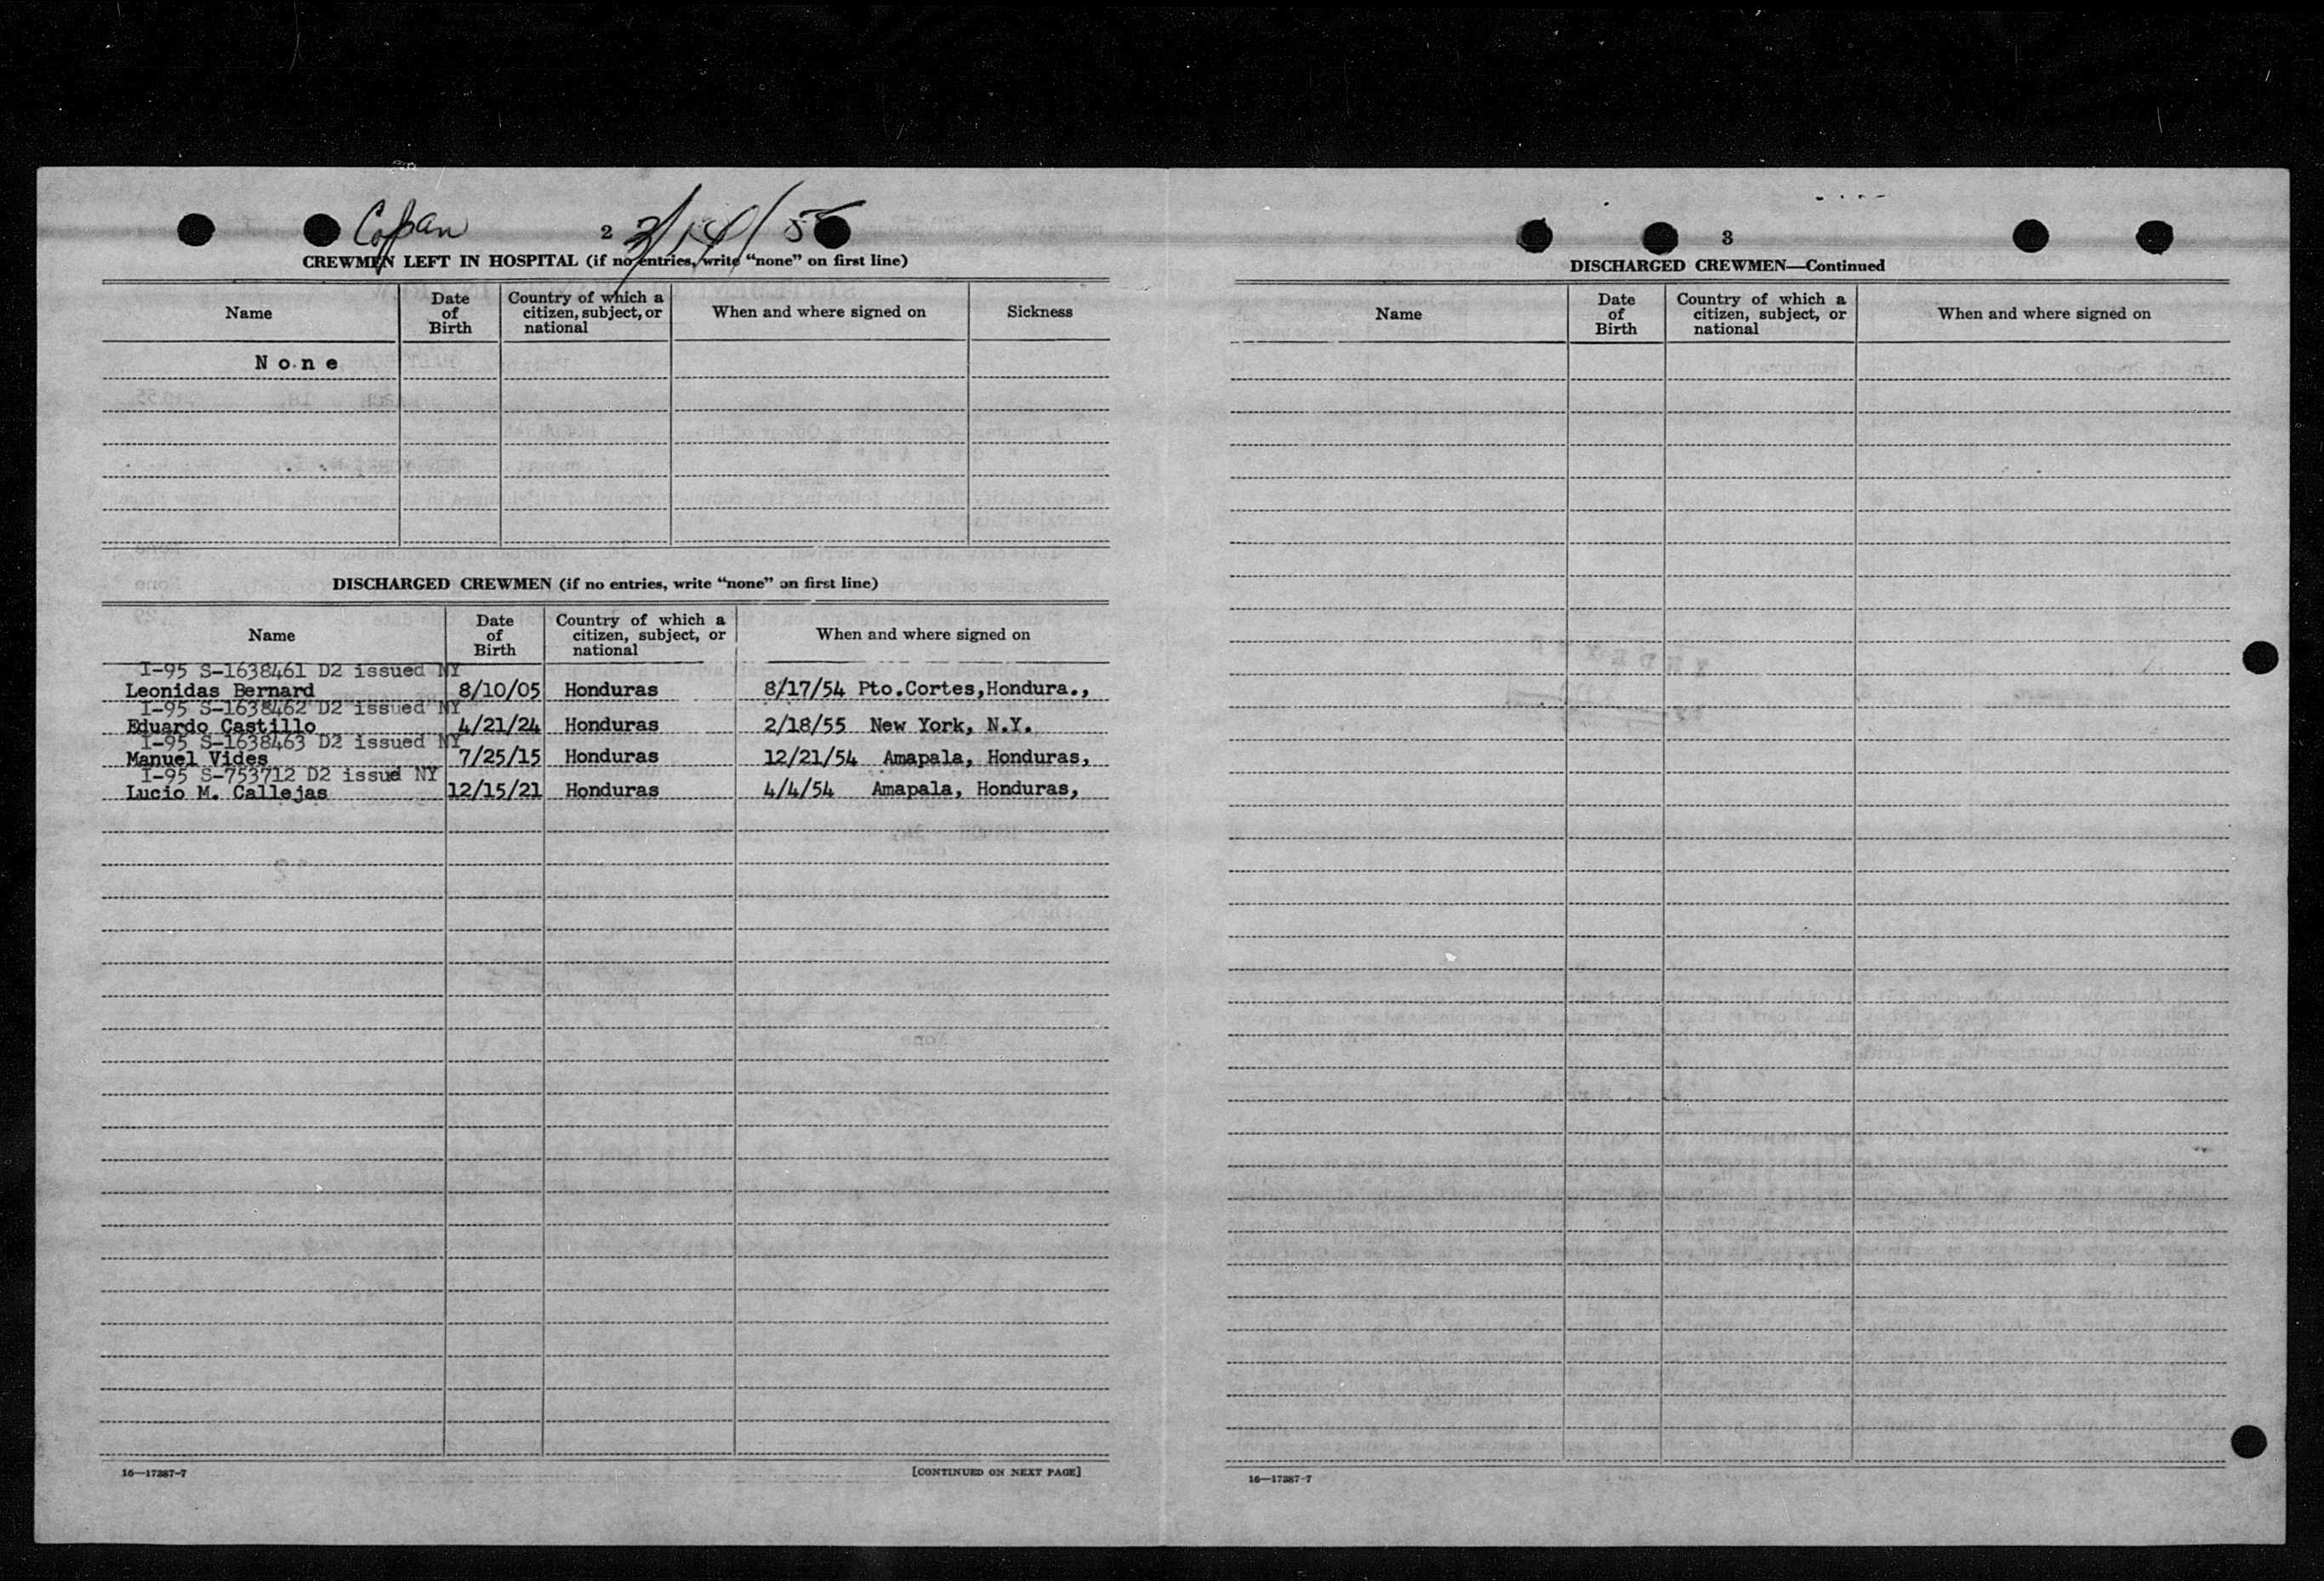 Copan 2 3/
CREWMEN LEFT IN HOSPITAL (if no entries, write “none” on first line)
Name Date of Birth Country of which a citizen, subject, or national When and where signed on Sickness
None
DISCHARGED CREWMEN (if no entries, write “none” on first line)
Name Date of Birth Country of which a citizen, subject, or national When and where signed on
I-95 S-1638461 D2 issued NY
Leonidas Bernard 8/10/05 Honduras 8/17/54 Pto.Cortes,Hondura.,
I-95 S-1638462 D2 issued NY
Eduardo Castillo 4/21/24 Honduras 2/18/55 New York, N.Y.
I-95 S-1638463 D2 issued NY
Manuel Vides 7/25/15 Honduras 12/21/54 Amapala, Honduras,
I-95 S-753712 D2 issud NY
Lucio M. Callejas 12/15/21 Honduras 4/4/54 Amapala, Honduras,
16—17387-7 [CONTINUED ON NEXT PAGE]
3
DISCHARGED CREWMEN—Continued
Name Date of Birth Country of which a citizen, subject, or national When and where signed on
16—17387-7